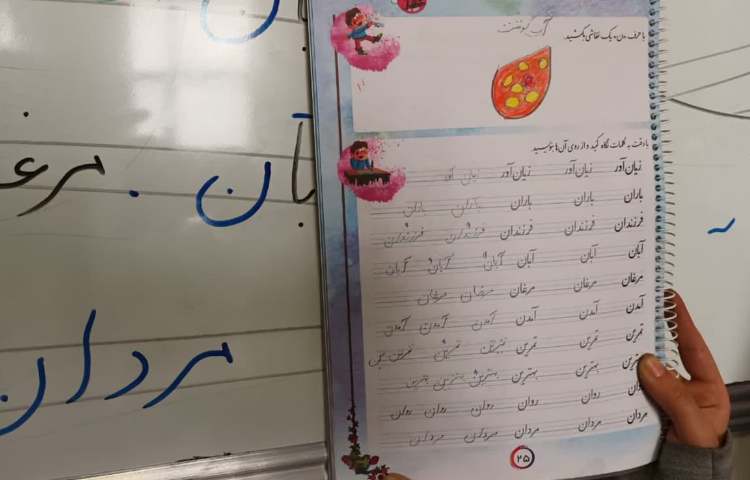 با حرف «ن» یک نقاشی بکشید.
آب گوشت
با دقت به کلمات نگاه کنید و از روی آن‌ها بنویسید
زیان‌آور زیان‌آور زیان‌آور زیان آور
باران باران باران باران باران
فرزندان فرزندان فرزندان فرزندان فرزندان
آبان آبان آبان آبان آبان آبان
مرغان مرغان مرغان مرغان مرغان
آمدن آمدن آمدن آمدن آمدن آمدن
تمرین تمرین تمرین تمرین تمرین
بهترین بهترین بهترین بهترین بهترین بهترین
روان روان روان روان روان
مردان مردان مردان مردان مردان
۲۵
مرغ
مردان